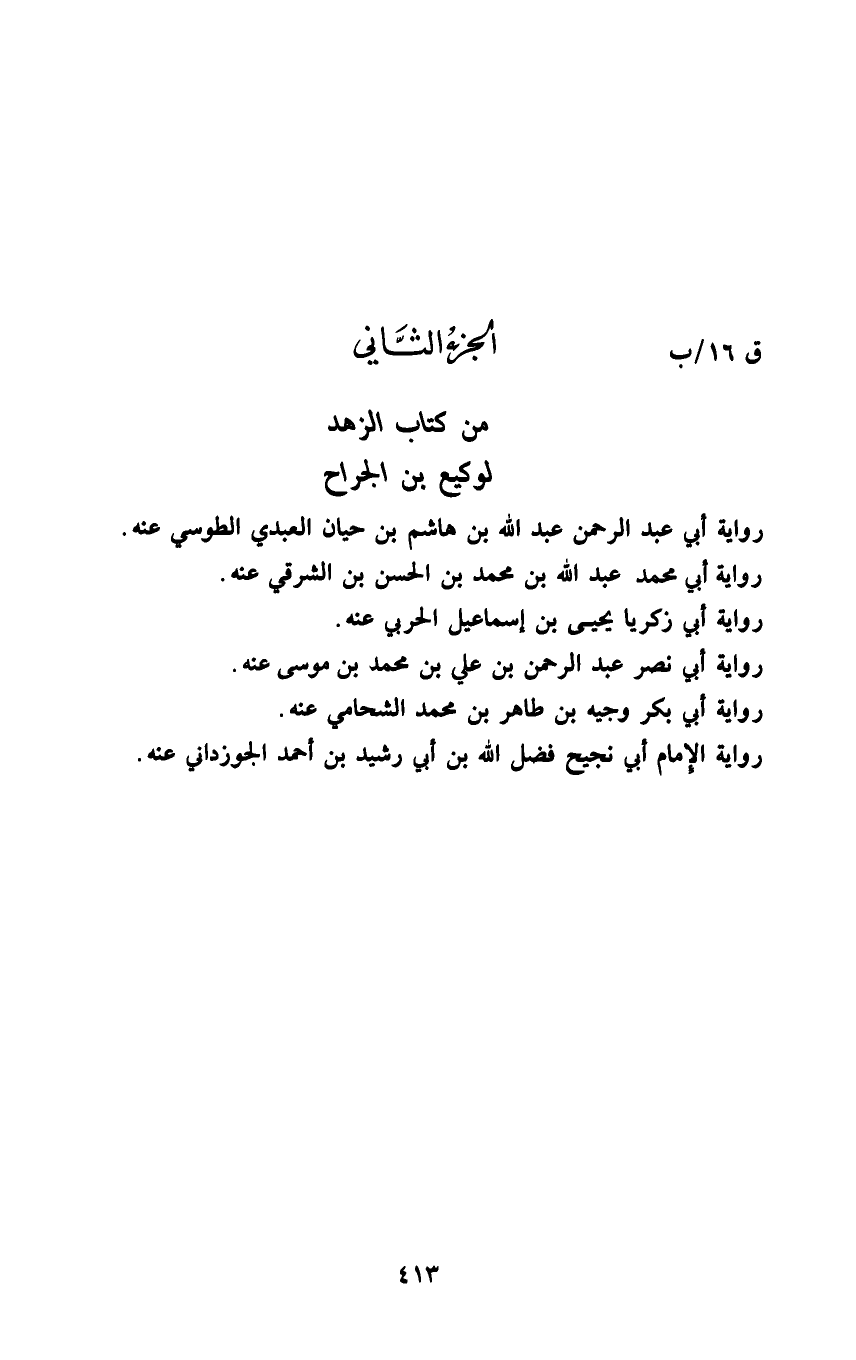 ق ١٦/ب الجزءُ الثَّاني
من كتاب الزهد
لوكيع بن الجراح
رواية أبي عبد الرحمن عبد الله بن هاشم بن حيان العبدي الطوسي عنه.
رواية أبي محمد عبد الله بن محمد بن الحسن بن الشرقي عنه.
رواية أبي زكريا يحيى بن إسماعيل الحربي عنه.
رواية أبي نصر عبد الرحمن بن علي بن محمد بن موسى عنه.
رواية أبي بكر وجيه بن طاهر بن محمد الشحامي عنه.
رواية الإمام أبي نجيح فضل الله بن أبي رشيد بن أحمد الجوزداني عنه.
٤١٣